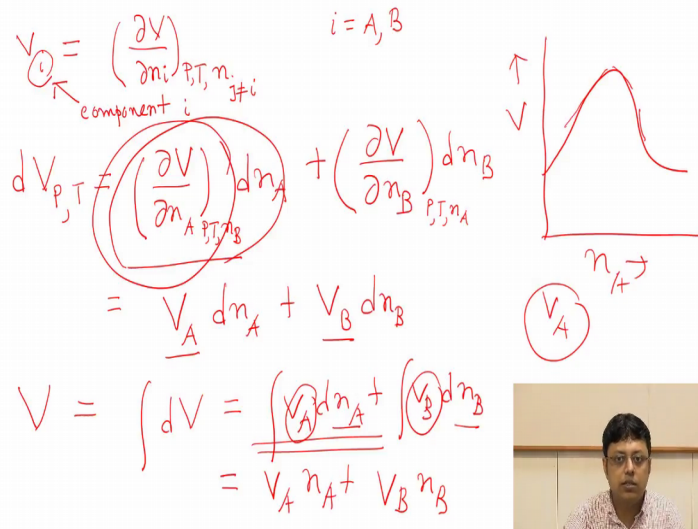 V_i = (∂V/∂ni)_{P,T,n_{j≠i}}
i = A, B
component i
dV_{P,T} = (∂V/∂n_A)_{P,T,n_B} dn_A + (∂V/∂n_B)_{P,T,n_A} dn_B
= V_A dn_A + V_B dn_B
V = ∫dV = ∫V_A dn_A + ∫V_B dn_B
= V_A n_A + V_B n_B
↑
V
n_A →
V_A